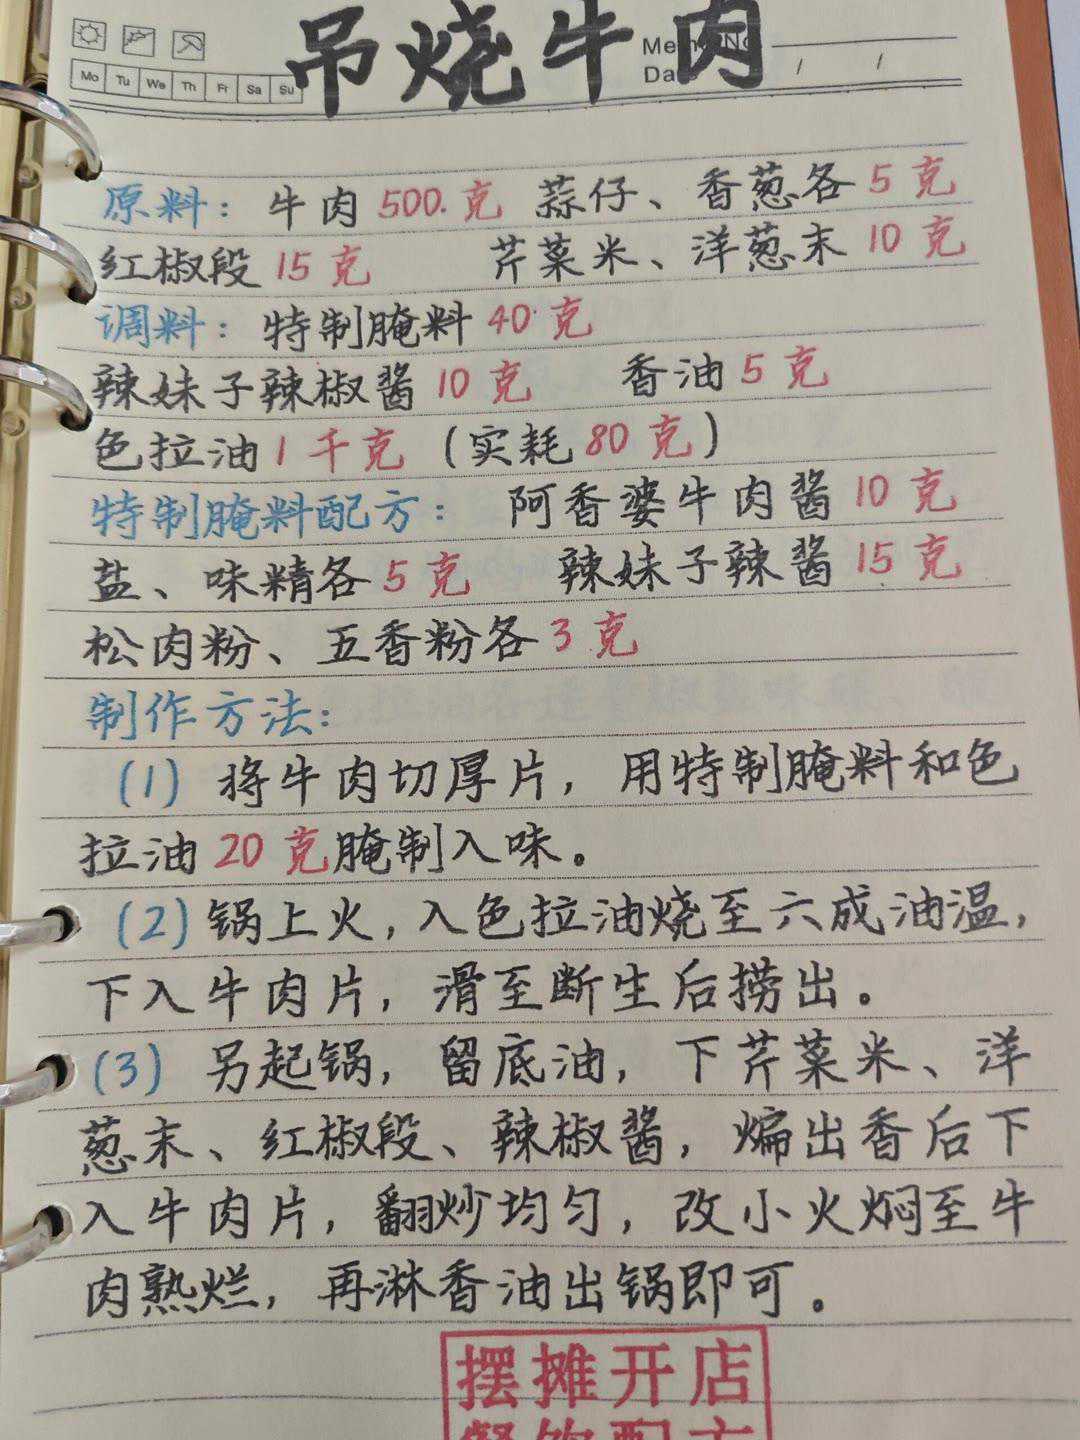 吊烧牛肉
Memo No.
Da / /
Mo Tu We Th Fr Sa Su
原料：牛肉500.克 蒜仔、香葱各5克
红椒段15克 芹菜米、洋葱末10克
调料：特制腌料40克
辣妹子辣椒酱10克 香油5克
色拉油1千克（实耗80克）
特制腌料配方：阿香婆牛肉酱10克
盐、味精各5克 辣妹子辣酱15克
松肉粉、五香粉各3克
制作方法：
(1) 将牛肉切厚片，用特制腌料和色
拉油20克腌制入味。
(2)锅上火，入色拉油烧至六成油温，
下入牛肉片，滑至断生后捞出。
(3) 另起锅，留底油，下芹菜米、洋
葱末、红椒段、辣椒酱，煸出香后下
入牛肉片，翻炒均匀，改小火焖至牛
肉熟烂，再淋香油出锅即可。
摆摊开店
餐饮配方